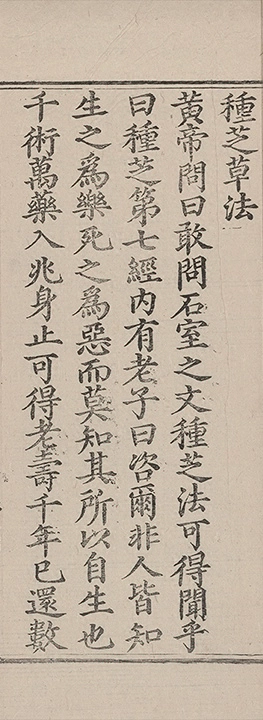 種芝草法
黃帝問曰敢問石室之文種芝法可得聞乎
曰種芝第七經內有老子曰咨爾非人皆知
生之為樂死之為惡而莫知其所以自生也
千術萬藥入兆身止可得老壽千年已還數